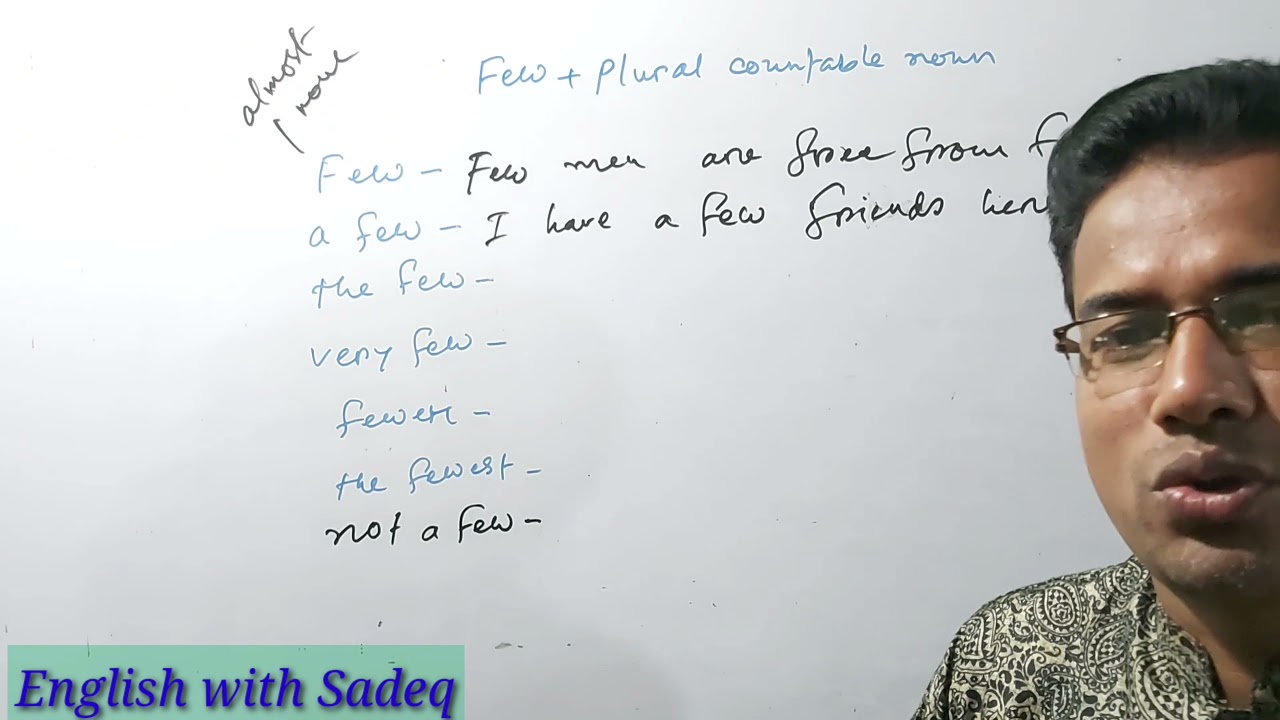 almost
none
Few + plural countable noun
Few - Few men are free from f
a few - I have a few friends her
the few -
very few -
fewer -
the fewest -
not a few -
English with Sadeq